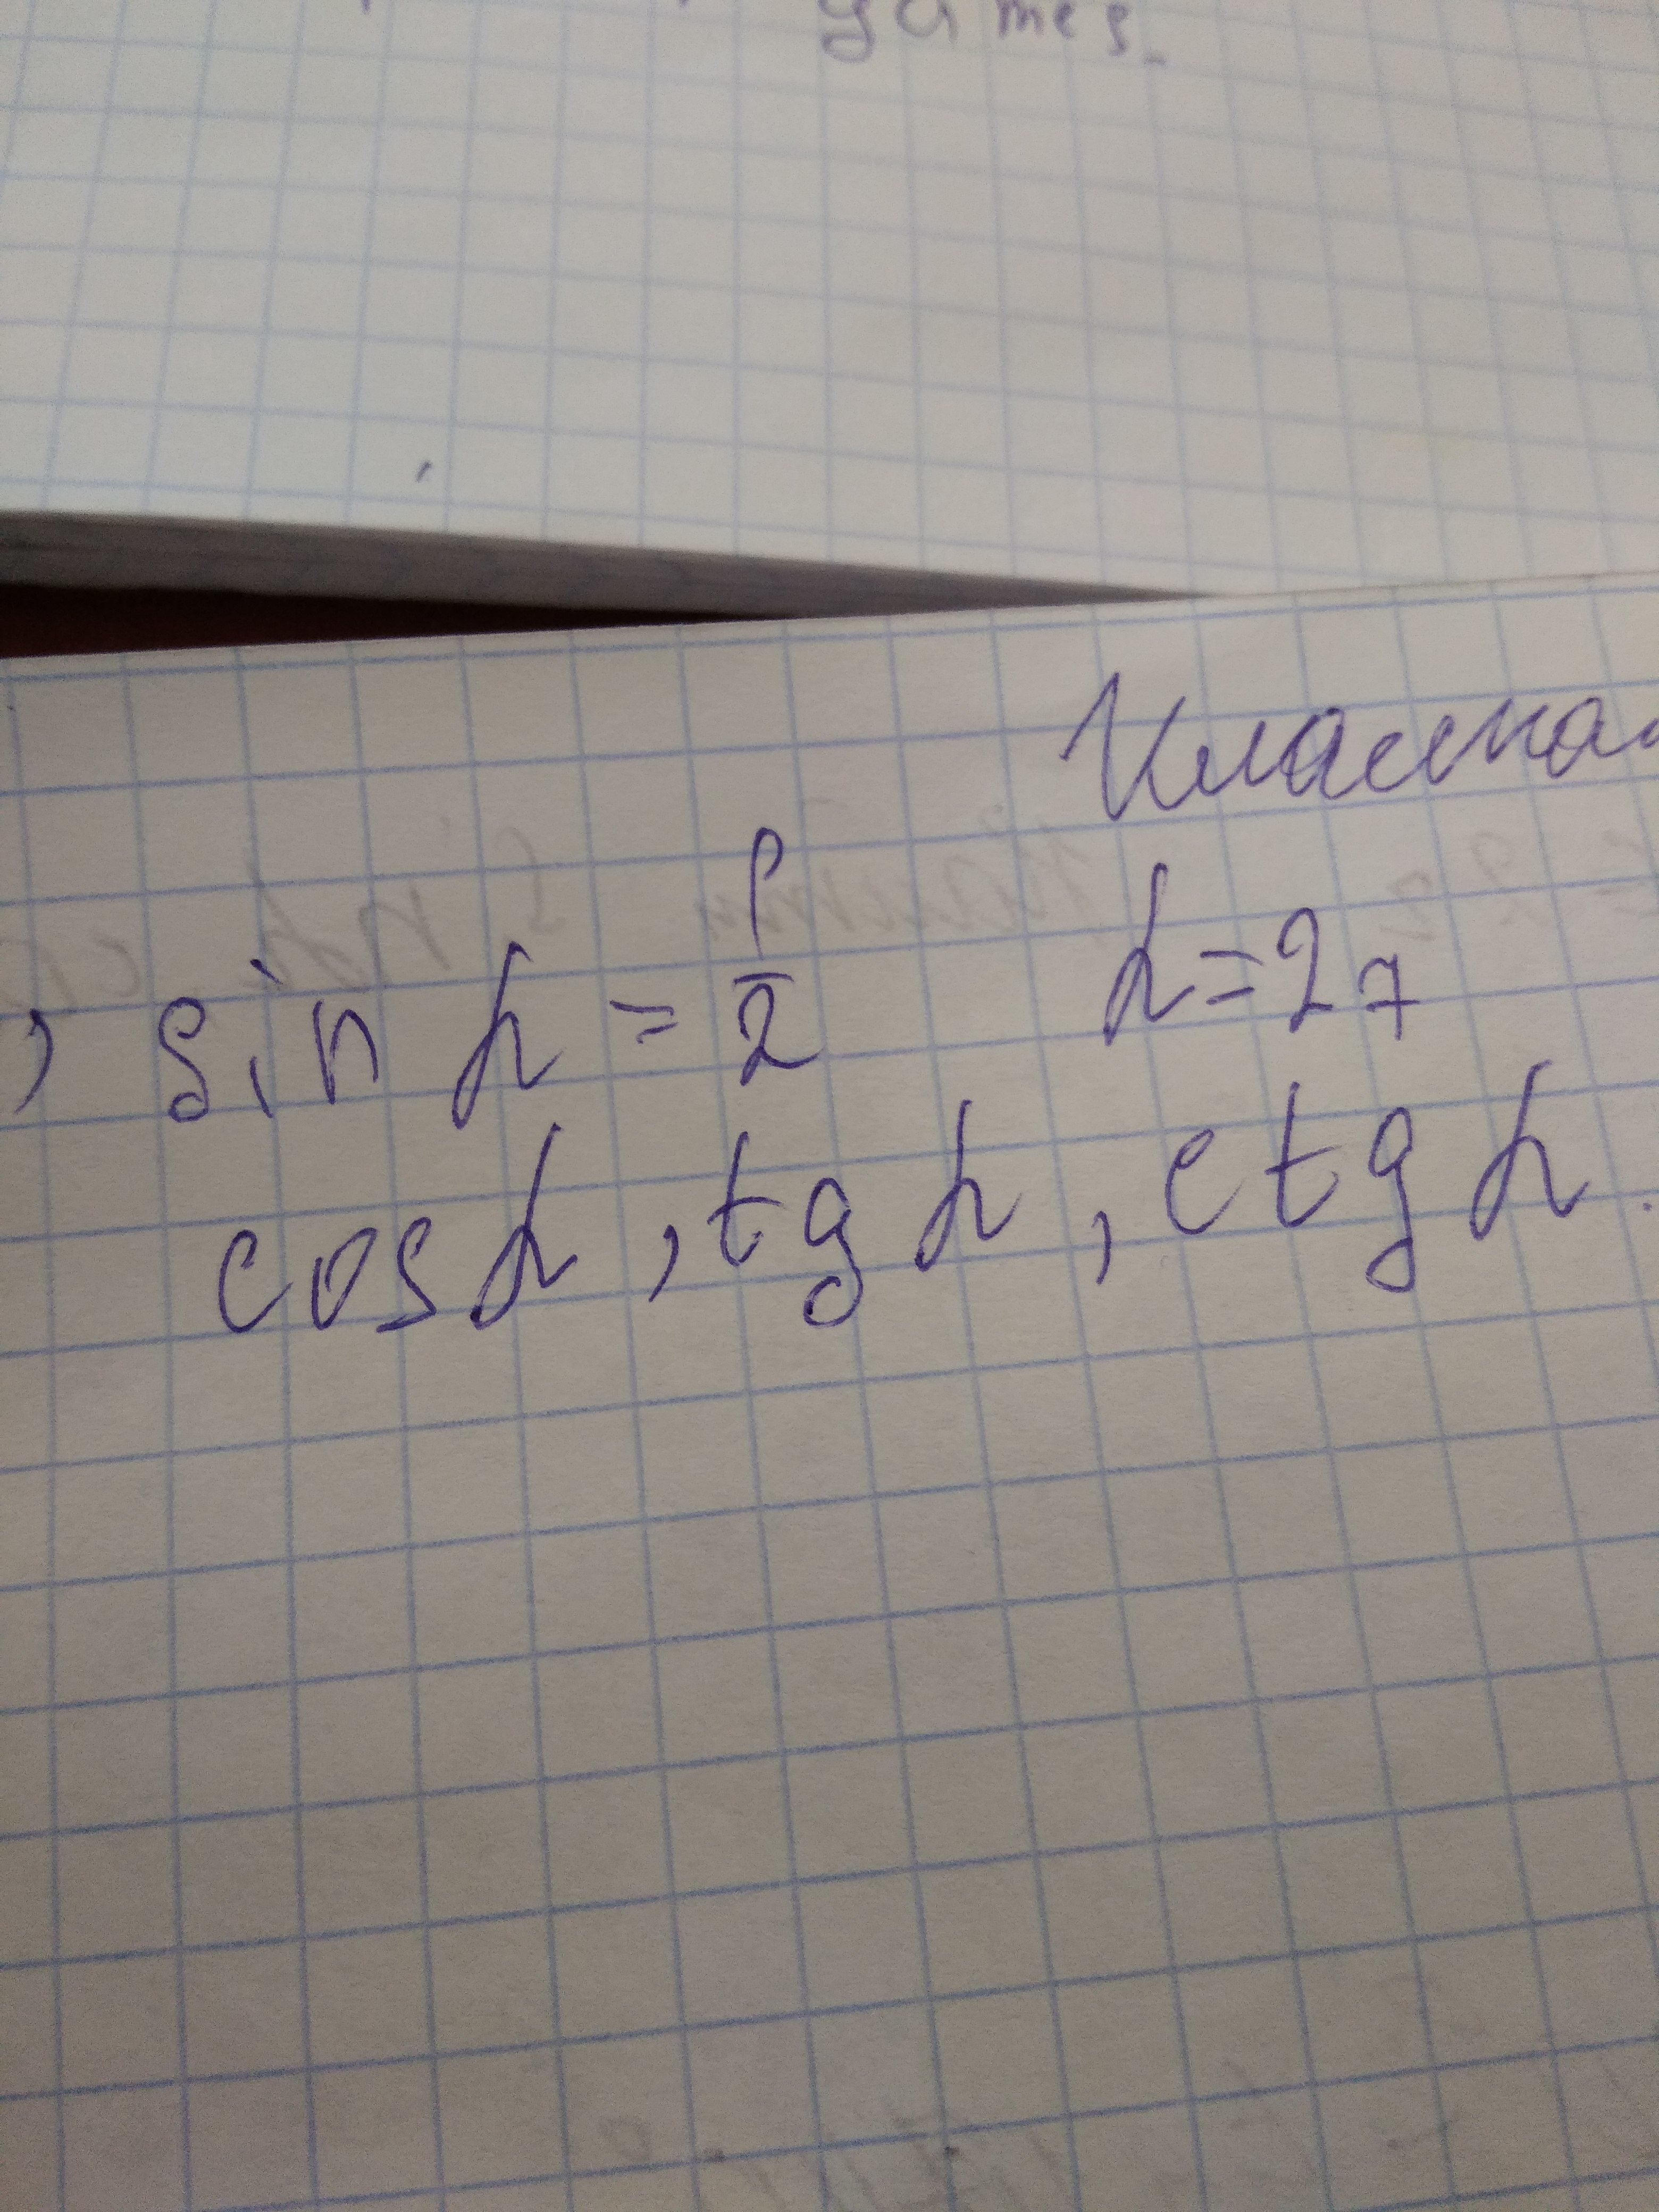 games.
Классная
, sin α = 1/2 α = 2ч
cos α, tg α, ctg α.